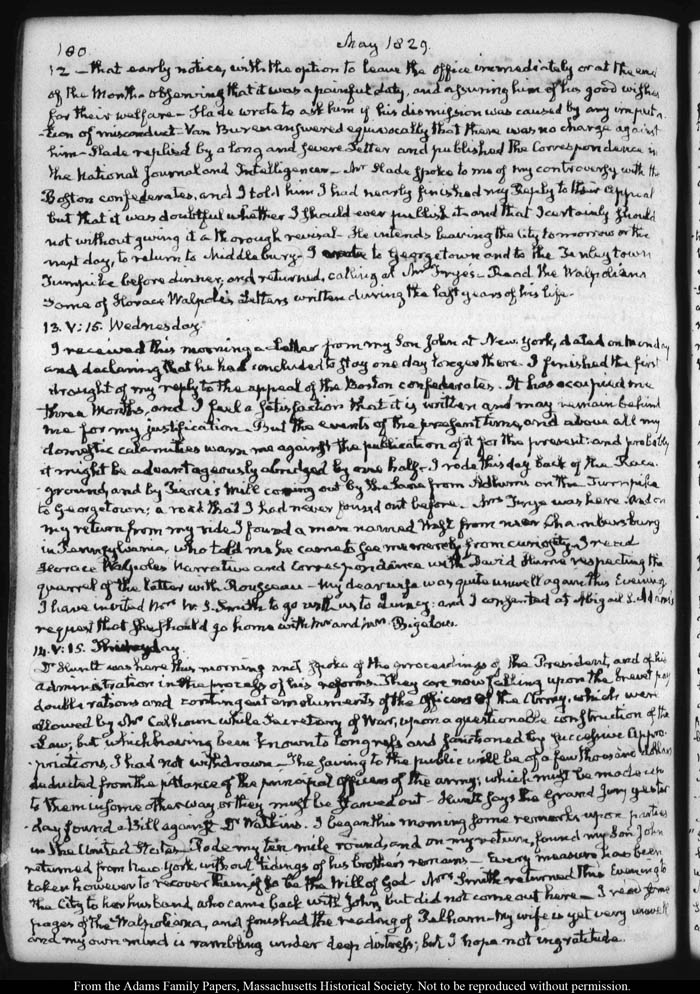 180.
May 1829.
12 — that early notice, with the option to leave the office immediately or at the end
of the Month observing that it was a painful duty, and assuring him of his good wishes
for their welfare — Slade wrote to ask him if his dismission was caused by any imputa-
tion of misconduct. Van Buren answered equivocally that there was no charge against
him — Slade replied by a long and severe Letter and published the Correspondence in
the National Journal and Intelligencer — Mr Slade spoke to me of my controversy with the
Boston confederates, and I told him I had nearly finished my Reply to their appeal
but that it was doubtful whether I should ever publish it — and that I certainly should
not without giving it a thorough revisal — He intends leaving the City tomorrow or the
next day, to return to Middlebury — I to Georgetown and to the Tenley town
Turnpike before dinner; and returned, calling at Mrs Frye's — Read the Walpoliana
some of Horace Walpole's Letters written during the last years of his life.
13. V: 15. Wednesday
I received this morning a Letter from my Son John at New York, dated on Monday
and declaring that he had concluded to stay one day longer there. I finished the first
draught of my reply to the appeal of the Boston confederates. It has occupied me
three Months, and I feel a satisfaction that it is written and may remain behind
me for my justification — But the events of the present time, and above all my
domestic calamities warn me against the publication of it for the present: and probably
it might be advantageously abridged by one half — I rode this day back of the Race-
ground, and by Pierce's Mill coming out by the Lane from Adhurns on the Turnpike
to Georgetown; a road that I had never found out before. Mrs Frye was here. And on
my return from my ride I found a man named West from near Chambersburg
in Pennsylvania, who told me he came to see me merely from curiosity. I read
Horace Walpole's Narrative and Correspondence with David Hume respecting the
quarrel of the latter with Rousseau — My dear wife was quite unwell again this Evening
I have invited Mrs W. S. Smith to go with us to Quincy: and I consented at Abigail S. Adams's
request that she should go home with Mr and Mrs Bigelow.
14. V: 15. Thursday.
Dr Huntt was here this morning and spoke of the proceedings of the President, and of his
administration in the process of his reforms. They are now falling upon the brevet pay
double rations and contingent emoluments of the officers of the Army, which were
allowed by Mr Calhoun while Secretary of War, upon a questionable construction of the
Law, but which having been known to Congress and sanctioned by successive appro-
priations, I had not withdrawn — The saving to the public will be of a few thousand dollars
deducted from the pittance of the principal officers of the army; which must be made up
to them in some other way, or they must be starved out — Huntt says the Grand Jury yester-
day found a Bill against Dr Watkins. I began this morning some remarks upon parties
in the United States. Rode my ten mile round, and on my return, found my Son John
returned from New York, without tidings of his brother's remains — Every measure has been
taken however to recover them, if so be the Will of God — Mrs Smith returned this Evening to
the City to her husband, who came back with John, but did not come out here — I read some
pages of the Walpoliana, and finished the reading of Pelham — My wife is yet very unwell
and my own mind is rambling under deep distress; but I hope not ingratitude.
From the Adams Family Papers, Massachusetts Historical Society. Not to be reproduced without permission.